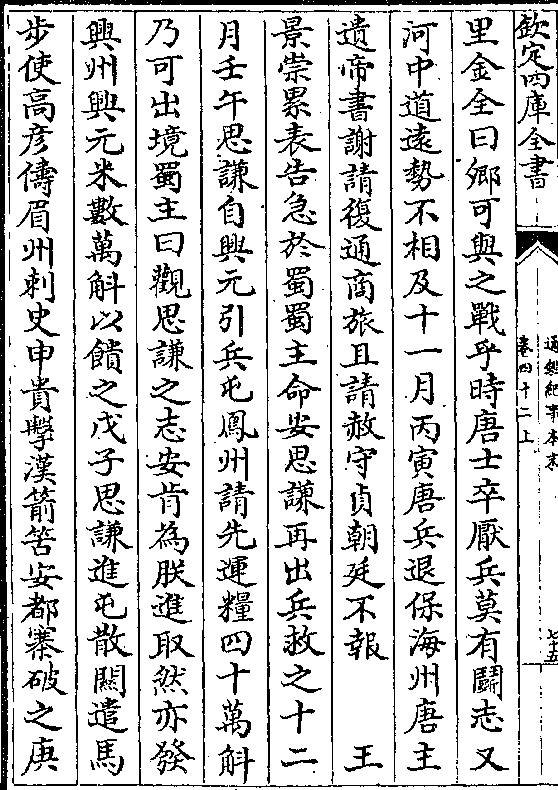 欽定四庫全書
通鑑紀事本末
卷四十二上
七十五
里金全曰鄉可與之戰乎時唐士卒厭兵莫有鬬志又
河中道遠勢不相及十一月丙寅唐兵退保海州唐主
遺帝書謝請復通商旅且請赦守貞朝廷不報　王
景崇累表告急於蜀蜀主命安思謙再出兵救之十二
月壬午思謙自興元引兵屯鳳州請先運糧四十萬斛
乃可出境蜀主曰觀思謙之志安肯為朕進取然亦發
興州興元米數萬斛以饋之戊子思謙進屯散關遣馬
步使高彥儔眉州刺史申貴擊漢箭筈安都寨破之庚